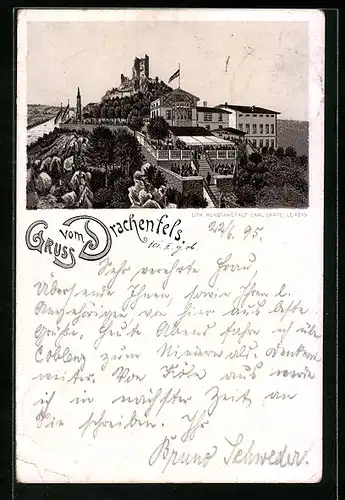 LITH. KUNSTANSTALT CARL GARTE, LEIPZIG
Gruss vom Drachenfels.
22/6. 95.
Sehr verehrte Frau,
Übersende Ihnen, sowie Ihren l.
Angehörigen von hier aus beste
Grüße. Heute Abend fahre ich über
Coblenz zum Niederwald. Denkmal
weiter. Von Köln aus werde
ich in nächster Zeit an
Sie schreiben. Ihr
Bruno Schweder.